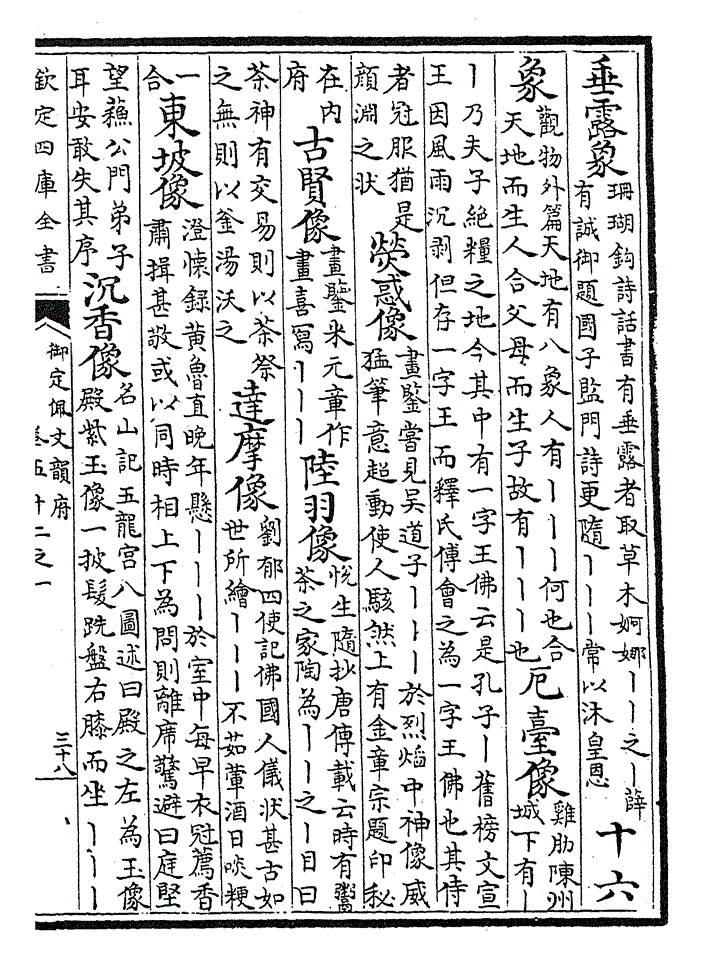 垂露象
珊瑚鈎詩話書有垂露者取草木婀娜丨丨之丨薛
有誠御題國子監門詩更隨丨丨丨常以沐皇恩
十六
象
觀物外篇天地有八象人有丨丨丨何也合
天地而生人合父母而生子故有丨丨丨也
厄臺像
雞肋陳州
城下有丨
丨乃夫子絶糧之地今其中有一字王佛云是孔子丨舊榜文宣
王因風雨沉剥但存一字王而釋氏傅會之為一字王佛也其侍
者冠服猶是
顔淵之状
熒惑像
畫鑒嘗見吳道子丨丨丨於烈焰中神像威
猛筆意超動使人駭然上有金章宗題印秘
在内
府
古賢像
畫鑒米元章作
畫喜寫丨丨丨
陸羽像
恱生隨抄唐傳載云時有鬻
茶之家陶為丨丨之丨目曰
茶神有交易則以茶祭
之無則以釜湯沃之
達摩像
劉郁四使記佛國人儀状甚古如
世所繪丨丨丨不茹葷酒日啖粳
一
合
東坡像
澄懐録黄魯直晚年懸丨丨丨於室中每早衣冠薦香
肅揖甚敬或以同時相上下為問則離席驚避曰庭堅
望蘓公門弟子
耳安敢失其序
沉香像
名山記五龍宫八圖述曰殿之左為玉像
殿紫玉像一披髮跣盤右膝而坐丨丨丨
欽定四庫全書
御定佩文韻府
卷五十二之一
三十八